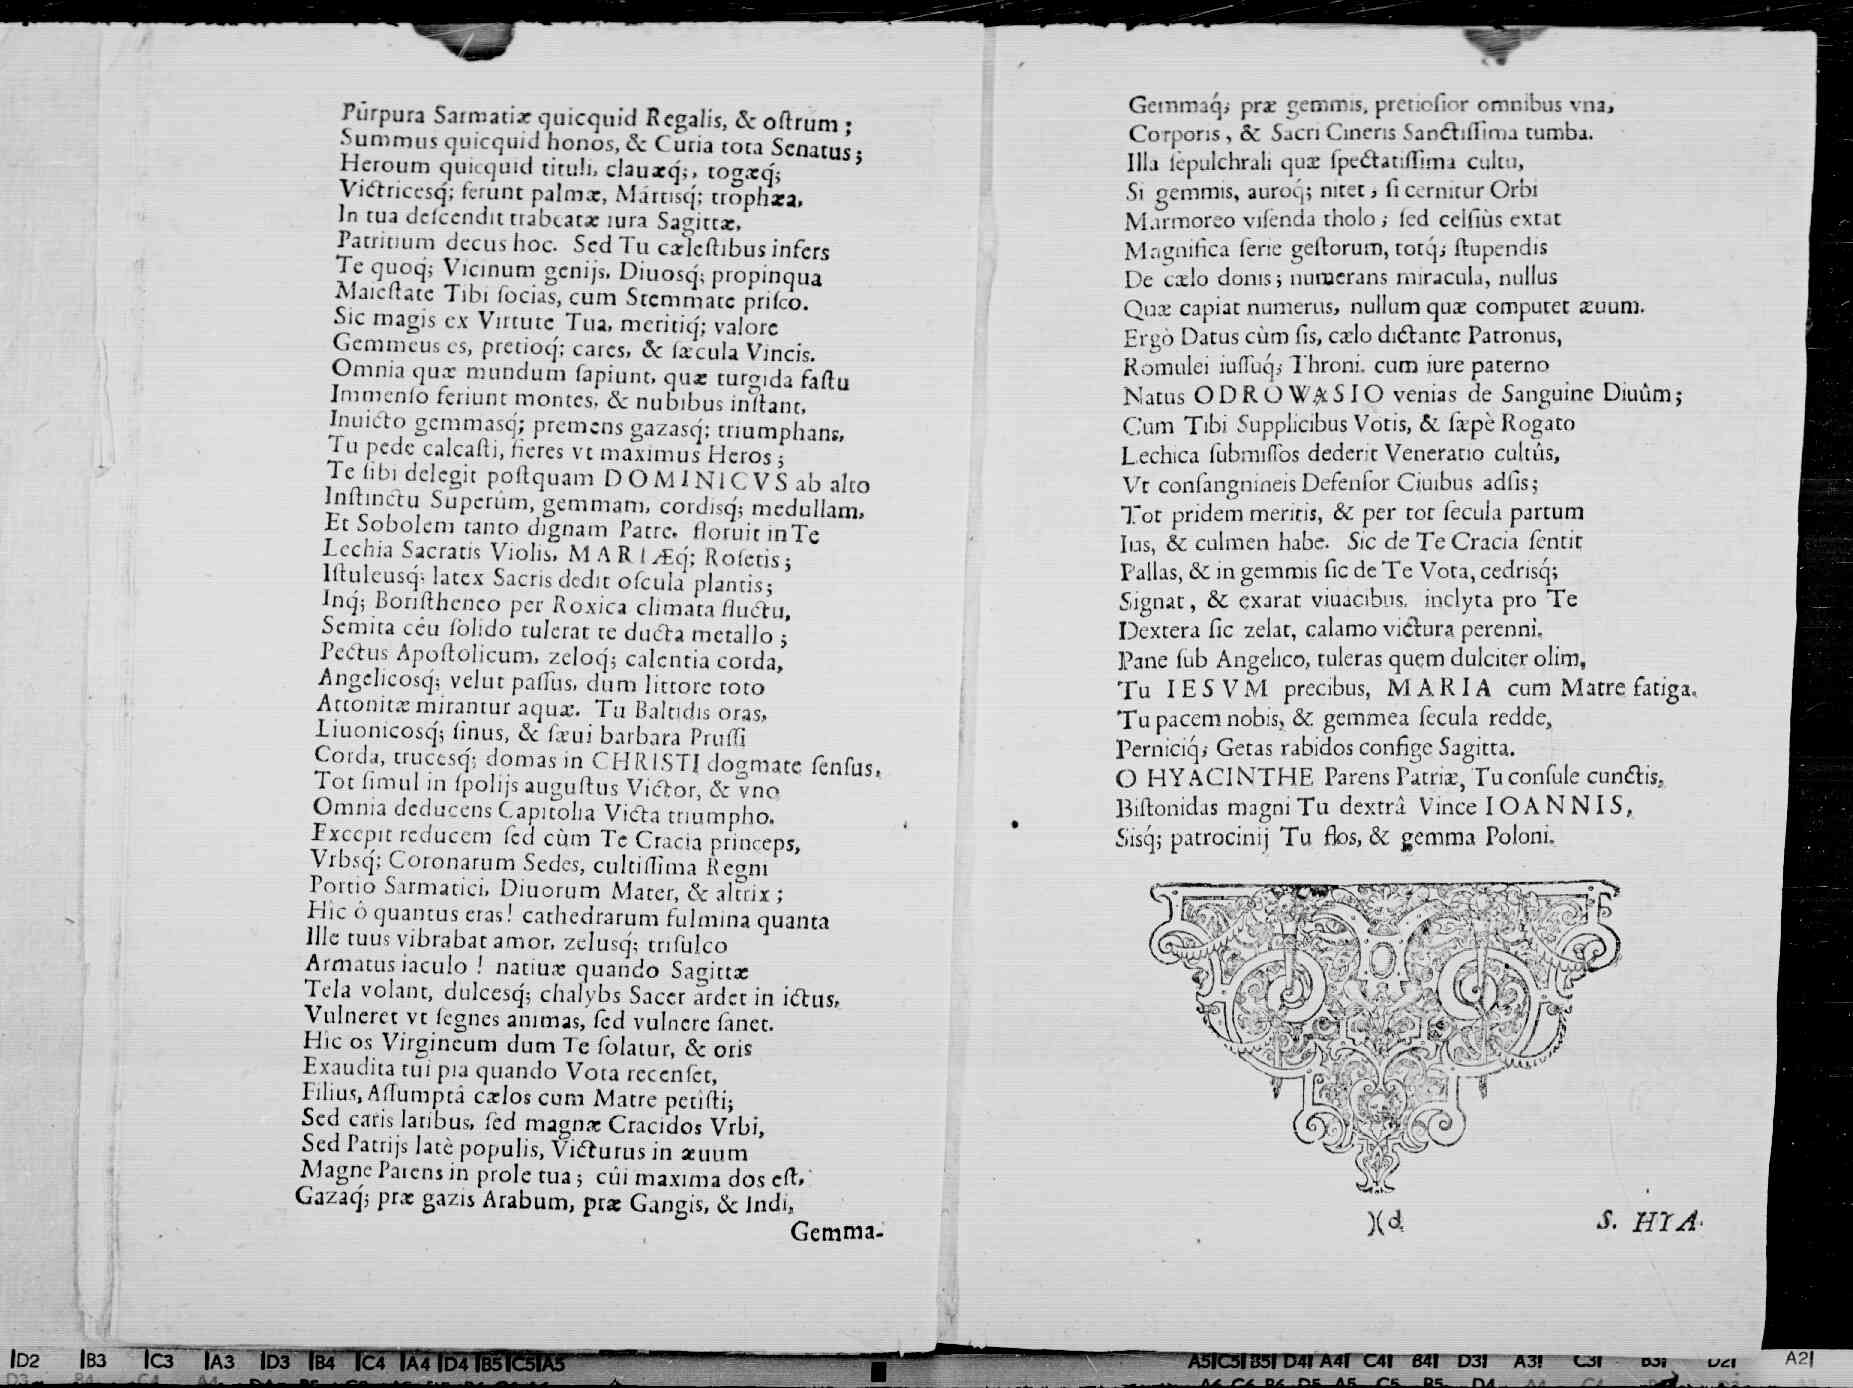 Pûrpura Sarmatiæ quicquid Regalis, & oſtrum;
Summus quicquid honos, & Curia tota Senatus;
Heroum quicquid tituli, clauæq́;, togæq́;
Victricesq́; ferunt palmæ, Martisq́; trophæa,
In tua deſcendit trabeatæ iura Sagittæ,
Patritium decus hoc. Sed Tu cæleſtibus infers
Te quoq́; Vicinum genijs, Diuosq́; propinqua
Maieſtate Tibi ſocias, cum Stemmate priſco.
Sic magis ex Virtute Tua, meritiq́; valore
Gemmeus es, pretioq́; cares, & ſæcula Vincis.
Omnia quæ mundum ſapiunt, quæ turgida faſtu
Immenſo feriunt montes, & nubibus inſtant,
Inuicto gemmasq́; premens gazasq́; triumphans,
Tu pede calcaſti, fieres vt maximus Heros;
Te ſibi delegit poſtquam DOMINICVS ab alto
Inſtinctu Superûm, gemmam, cordisq́; medullam,
Et Sobolem tanto dignam Patre, floruit in Te
Lechia Sacratis Violis, MARIÆq́; Roſetis;
Iſtuleusq́; latex Sacris dedit oſcula plantis;
Inq́; Boriſtheneo per Roxica climata fluctu,
Semita ceu ſolido tulerat te ducta metallo;
Pectus Apoſtolicum, zeloq́; calentia corda,
Angelicosq́; velut paſſus, dum littore toto
Attonitæ mirantur aquæ. Tu Baltidis oras,
Liuonicosq́; ſinus, & ſæui barbara Pruſſi
Corda, trucesq́; domas in CHRISTI dogmate ſenſus,
Tot ſimul in ſpolijs auguſtus Victor, & vno
Omnia deducens Capitolia Victa triumpho.
Excepit reducem ſed cùm Te Cracia princeps,
Vrbsq́; Coronarum Sedes, cultiſſima Regni
Portio Sarmatici, Diuorum Mater, & altrix;
Hic ô quantus eras! cathedrarum fulmina quanta
Ille tuus vibrabat amor, zelusq́; triſulco
Armatus iaculo! natiuæ quando Sagittæ
Tela volant, dulcesq́; chalybs Sacer ardet in ictus,
Vulneret vt ſegnes animas, ſed vulnere ſanet.
Hic os Virgineum dum Te ſolatur, & oris
Exaudita tui pia quando Vota recenſet,
Filius, Aſſumptâ cælos cum Matre petiſti;
Sed caris laribus, ſed magnæ Cracidos Vrbi,
Sed Patrijs latè populis, Victurus in æuum
Magne Parens in prole tua; cûi maxima dos eſt,
Gazaq́; præ gazis Arabum, præ Gangis, & Indi,
Gemma-
Gemmaq́; præ gemmis, pretioſior omnibus vna,
Corporis, & Sacri Cineris Sanctiſſima tumba.
Illa ſepulchrali quæ ſpectatiſſima cultu,
Si gemmis, auroq́; nitet, ſi cernitur Orbi
Marmoreo viſenda tholo; ſed celſiùs extat
Magnifica ſerie geſtorum, totq́; ſtupendis
De cælo donis; numerans miracula, nullus
Quæ capiat numerus, nullum quæ computet æuum.
Ergò Datus cùm ſis, cælo dictante Patronus,
Romulei iuſſuq́; Throni, cum iure paterno
Natus ODROWASIO venias de Sanguine Diuûm;
Cum Tibi Supplicibus Votis, & ſæpè Rogato
Lechica ſubmiſſos dederit Veneratio cultûs,
Vt conſangnineis Defenſor Ciuibus adſis;
Tot pridem meritis, & per tot ſecula partum
Ius, & culmen habe. Sic de Te Cracia ſentit
Pallas, & in gemmis ſic de Te Vota, cedrisq́;
Signat, & exarat viuacibus, inclyta pro Te
Dextera ſic zelat, calamo victura perenni.
Pane ſub Angelico, tuleras quem dulciter olim,
Tu IESVM precibus, MARIA cum Matre fatiga.
Tu pacem nobis, & gemmea ſecula redde,
Perniciq́; Getas rabidos confige Sagitta.
O HYACINTHE Parens Patriæ, Tu conſule cunctis,
Biſtonidas magni Tu dextrâ Vince IOANNIS,
Sisq́; patrocinij Tu flos, & gemma Poloni.
)( d.
S. HYA.
D2 B3 C3 A3 D3 B4 C4 A4 D4 B5 C5 A5
A5 C5 B5 D4 A4 C4 B4 D3 A3 C3 B3 D2 A2